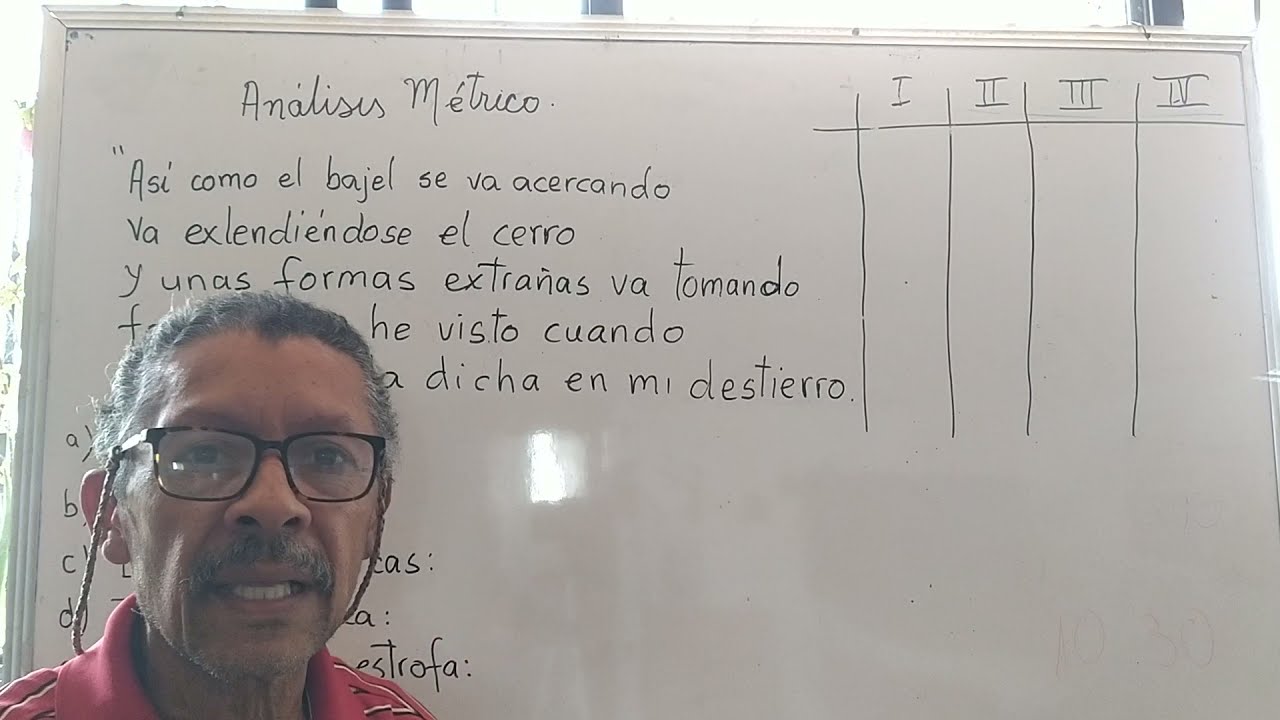 Análisis Métrico.
I II III IV
"Así como el bajel se va acercando
va exlendiéndose el cerro
y unas formas extrañas va tomando
he visto cuando
dicha en mi destierro.
a)
b
c)
d)
estrofa:
10 30